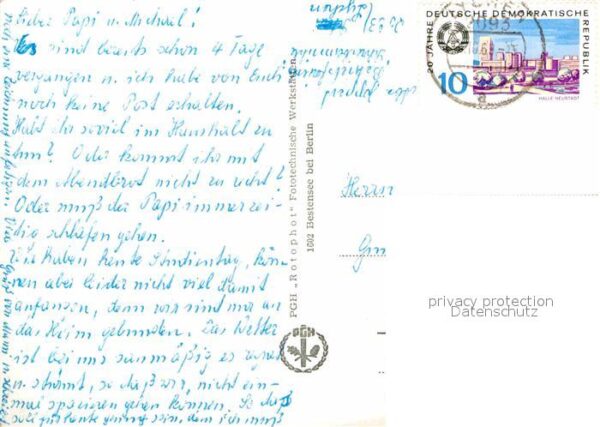 Lieber Papi u. Michael!
Es sind bereits schon 4 Tage
vergangen u. ich habe von Euch
noch keine Post erhalten.
Habt ihr soviel im Haushalt zu
tun? Oder kommt ihr mit
dem Abendbrot nicht zu recht?
Oder muß der Papi immer zei-
tig schlafen gehen.
Wir haben heute Studientag, kön-
nen aber leider nicht viel damit
anfangen, denn wir sind nur an
das Heim gebunden. Das Wetter
ist bei uns saumäßig es regnet
u. stürmt, so daß wir nicht ein-
mal spazieren gehen können. So das
soll für heute genug sein, denn ich muß
PGH „Rotophot" Fototechnische Werkstätten
1602 Bestensee bei Berlin
PGH
20 JAHRE DEUTSCHE DEMOKRATISCHE REPUBLIK
10
HALLE-NEUSTADT
Herrn
privacy protection
Datenschutz